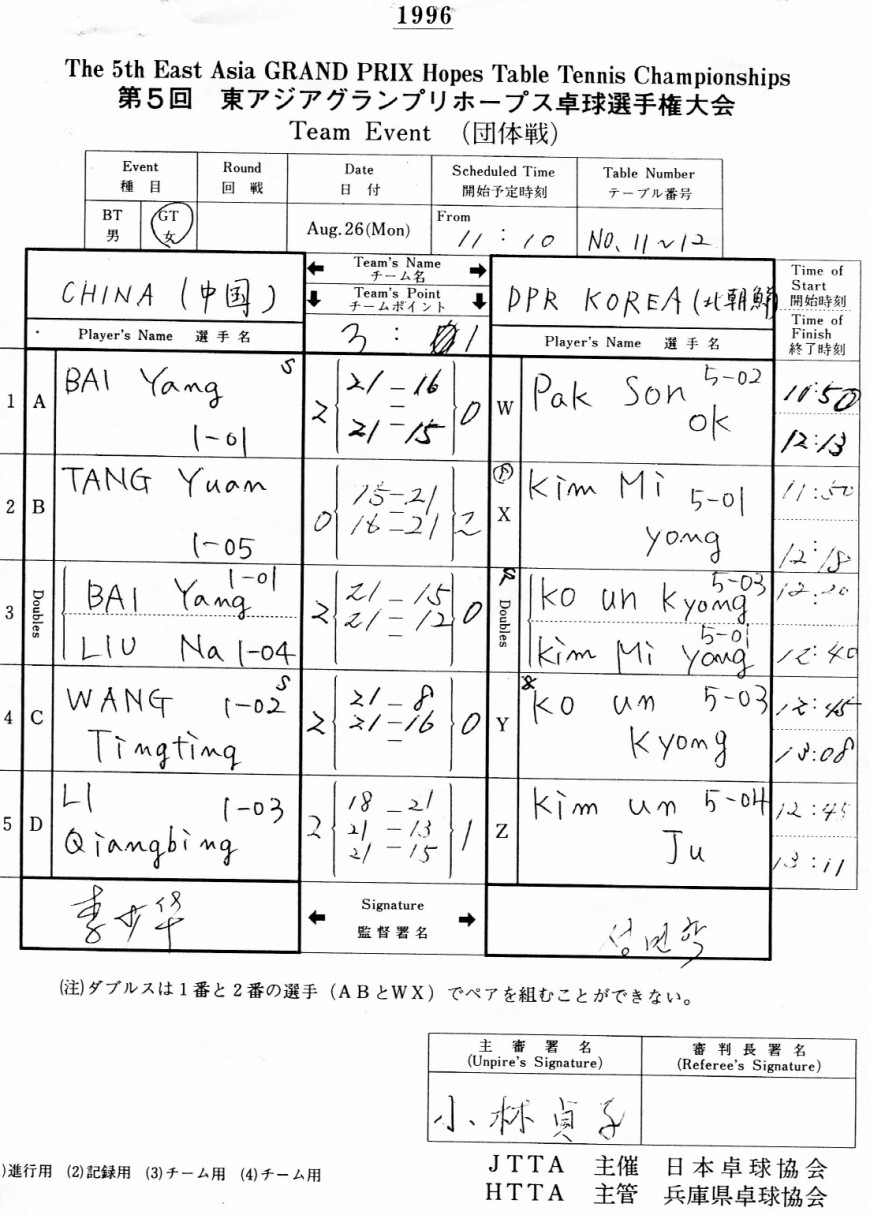 1996
The 5th East Asia GRAND PRIX Hopes Table Tennis Championships
第5回 東アジアグランプリホープス卓球選手権大会
Team Event (団体戦)
Event Round Date Scheduled Time Table Number
種目 回戦 日付 開始予定時刻 テーブル番号
BT GT Aug.26(Mon) From 11:10 NO. 11~12
男 女
CHINA (中国) Team's Name DPR KOREA (北朝鮮)
チーム名
Team's Point
チームポイント
3 : 1
Time of Start
開始時刻
Time of Finish
終了時刻
Player's Name 選手名 Player's Name 選手名
1 A BAI Yang S 1-01 2 21-16 21-15 0 W Pak Son ok 5-02 11:50 12:13
2 B TANG Yuan 1-05 0 15-21 16-21 2 X Kim Mi yong 5-01 11:50 12:18
3 Doubles BAI Yang 1-01 2 21-15 0 Doubles Ko un kyong 5-03 12:20
LIU Na 1-04 21-12 Kim Mi yong 5-01 12:40
4 C WANG Tingting 1-02 S 2 21-8 21-16 0 Y Ko un Kyong 5-03 12:45 13:08
5 D LI Qiangbing 1-03 2 18-21 21-13 21-15 1 Z Kim un Ju 5-04 12:45 13:11
李少华 Signature
監督署名
(注)ダブルスは1番と2番の選手(ABとWX)でペアを組むことができない。
主審署名 審判長署名
(Unpire's Signature) (Referee's Signature)
小林貞子
)進行用 (2)記録用 (3)チーム用 (4)チーム用
JTTA 主催 日本卓球協会
HTTA 主管 兵庫県卓球協会